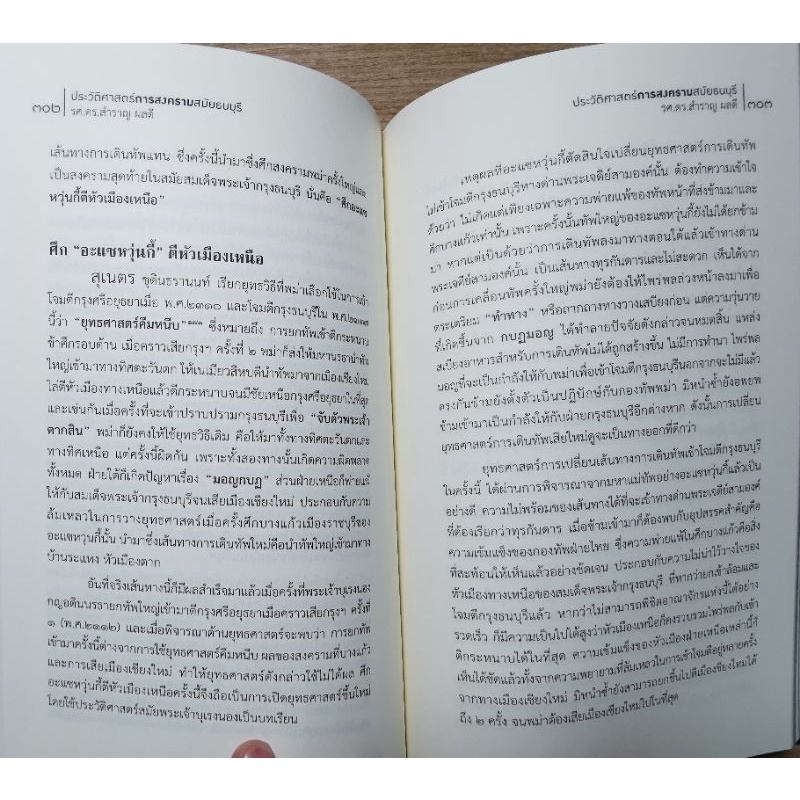 ๓๐๒ ประวัติศาสตร์การสงครามสมัยธนบุรี
รศ.ดร.สำราญ ผลดี
เส้นทางการเดินทัพแทน ซึ่งครั้งนี้นำมาซึ่งศึกสงครามพม่าครั้งใหญ่และ
เป็นสงครามสุดท้ายในสมัยสมเด็จพระเจ้ากรุงธนบุรี นั่นคือ “ศึกอะแซ
หวุ่นกี้ตีหัวเมืองเหนือ”
ศึก “อะแซหวุ่นกี้” ตีหัวเมืองเหนือ
สุเนตร ชุตินธรานนท์ เรียกยุทธวิธีที่พม่าเลือกใช้ในการเข้า
โจมตีกรุงศรีอยุธยาเมื่อ พ.ศ.๒๓๑๐ และโจมตีกรุงธนบุรีใน พ.ศ.๒๓๑๗
นี้ว่า “ยุทธศาสตร์คีมหนีบ” ซึ่งหมายถึง การยกทัพเข้าตีกระหนาบ
ข้าศึกรอบด้าน เมื่อคราวเสียกรุงฯ ครั้งที่ ๒ พม่าก็ส่งให้มหานรธานำทัพ
ใหญ่เข้ามาทางทิศตะวันตก ให้เนเมียวสิหบดีนำทัพมาจากเมืองเชียงใหม่
ไล่ตีหัวเมืองทางเหนือแล้วตีกระหนาบจนมีชัยเหนือกรุงศรีอยุธยาในที่สุด
และเช่นกันเมื่อครั้งที่จะเข้าปราบปรามกรุงธนบุรีเพื่อ “จับตัวพระเจ้า
ตากสิน” พม่าก็ยังคงให้ใช้ยุทธวิธีเดิม คือให้มาทั้งทางทิศตะวันตกและ
ทางทิศเหนือ แต่ครั้งนี้ผิดกัน เพราะทั้งสองทางนั้นเกิดความผิดพลาด
ทั้งหมด ฝ่ายใต้ก็เกิดปัญหาเรื่อง “มอญกบฏ” ส่วนฝ่ายเหนือก็พ่ายแพ้
ให้กับสมเด็จพระเจ้ากรุงธนบุรีจนเสียเมืองเชียงใหม่ ประกอบกับความ
ล้มเหลวในการวางยุทธศาสตร์เมื่อครั้งศึกบางแก้วเมืองราชบุรีของ
อะแซหวุ่นกี้นั้น นำมาซึ่งเส้นทางการเดินทัพใหม่คือนำทัพใหญ่เข้ามาทาง
บ้านระแหง หัวเมืองตาก
อันที่จริงเส้นทางนี้ก็มีผลสำเร็จมาแล้วเมื่อครั้งที่พระเจ้าบุเรงนอง
กญอดินนรธายกทัพใหญ่เข้ามาตีกรุงศรีอยุธยาเมื่อคราวเสียกรุงฯ ครั้งที่
๑ (พ.ศ.๒๑๑๒) และเมื่อพิจารณาด้านยุทธศาสตร์จะพบว่า การยกทัพ
เข้ามาครั้งนี้ต่างจากการใช้ยุทธศาสตร์คีมหนีบ ผลของสงครามที่บางแก้ว
และการเสียเมืองเชียงใหม่ ทำให้ยุทธศาสตร์ดังกล่าวใช้ไม่ได้ผล ศึก
อะแซหวุ่นกี้ตีหัวเมืองเหนือครั้งนี้จึงถือเป็นการเปิดยุทธศาสตร์ขึ้นใหม่
โดยใช้ประวัติศาสตร์สมัยพระเจ้าบุเรงนองเป็นบทเรียน
ประวัติศาสตร์การสงครามสมัยธนบุรี
รศ.ดร.สำราญ ผลดี ๓๐๓
เหตุผลที่อะแซหวุ่นกี้ตัดสินใจเปลี่ยนยุทธศาสตร์การเดินทัพ
ไม่เข้าโจมตีกรุงธนบุรีทางด่านพระเจดีย์สามองค์นั้น ต้องทำความเข้าใจ
ด้วยว่า ไม่เกิดแต่เพียงเฉพาะความพ่ายแพ้ของทัพหน้าที่ส่งข้ามมาและ
ศึกบางแก้วเท่านั้น เพราะครั้งนั้นทัพใหญ่ของอะแซหวุ่นกี้ยังไม่ได้ยกข้าม
มา หากแต่เป็นด้วยว่าการเดินทัพลงมาทางตอนใต้แล้วเข้าทางด่าน
พระเจดีย์สามองค์นั้น เป็นเส้นทางทุรกันดารและไม่สะดวก เห็นได้จาก
ก่อนการเคลื่อนทัพครั้งใหญ่พม่ายังต้องให้ไพร่พลล่วงหน้าลงมาเพื่อ
ตระเตรียม “ทำทาง” หรือถากถางทางวางเสบียงก่อน แต่ความวุ่นวาย
ที่เกิดขึ้นจาก กบฏมอญ ได้ทำลายปัจจัยดังกล่าวจนหมดสิ้น แหล่ง
สเบียงอาหารสำหรับการเดินทัพไม่ได้ถูกสร้างขึ้น ไม่มีการทำนา ไพร่พล
มอญที่จะเป็นกำลังให้กับพม่าเพื่อเข้าโจมตีกรุงธนบุรีนอกจากจะไม่มีแล้ว
ตรงกันข้ามยังตั้งตัวเป็นปฏิปักษ์กับกองทัพพม่า มิหนำซ้ำยังอพยพ
ข้ามเข้ามาเป็นกำลังให้กับฝ่ายกรุงธนบุรีอีกต่างหาก ดังนั้นการเปลี่ยน
ยุทธศาสตร์การเดินทัพเสียใหม่ดูจะเป็นทางออกที่ดีกว่า
ยุทธศาสตร์การเปลี่ยนเส้นทางการเดินทัพเข้าโจมตีกรุงธนบุรี
ในครั้งนี้ ได้ผ่านการพิจารณาจากมหาแม่ทัพอย่างอะแซหวุ่นกี้แล้วเป็น
อย่างดี ความไม่พร้อมของเส้นทางใต้ที่จะเข้าทางด่านพระเจดีย์สามองค์
ที่ต้องเรียกว่าทุรกันดาร เมื่อข้ามเข้ามาก็ต้องพบกับอุปสรรคสำคัญคือ
ความเข้มแข็งของกองทัพฝ่ายไทย ซึ่งความพ่ายแพ้ในศึกบางแก้วคือสิ่ง
ที่สะท้อนให้เห็นแล้วอย่างชัดเจน ประกอบกับความไม่น่าไว้วางใจของ
หัวเมืองทางเหนือของสมเด็จพระเจ้ากรุงธนบุรี ที่หากวกเข้าล้อมและ
โจมตีกรุงธนบุรีแล้ว หากว่าไม่สามารถพิชิตอาณาจักรแห่งนี้ได้อย่าง
รวดเร็ว ก็มีความเป็นไปได้สูงว่าหัวเมืองเหนือก็คงรวบรวมไพร่พลกันเข้า
ตีกระหนาบได้ในที่สุด ความเข้มแข็งของหัวเมืองฝ่ายเหนือเหล่านี้ก็
เห็นได้ชัดแล้วทั้งจากความพยายามที่ล้มเหลวในการเข้าโจมตีอยู่หลายครั้ง
จากทางเมืองเชียงใหม่ มิหนำซ้ำยังสามารถยกขึ้นไปตีเมืองเชียงใหม่ได้
ถึง ๒ ครั้ง จนพม่าต้องเสียเมืองเชียงใหม่ไปในที่สุด